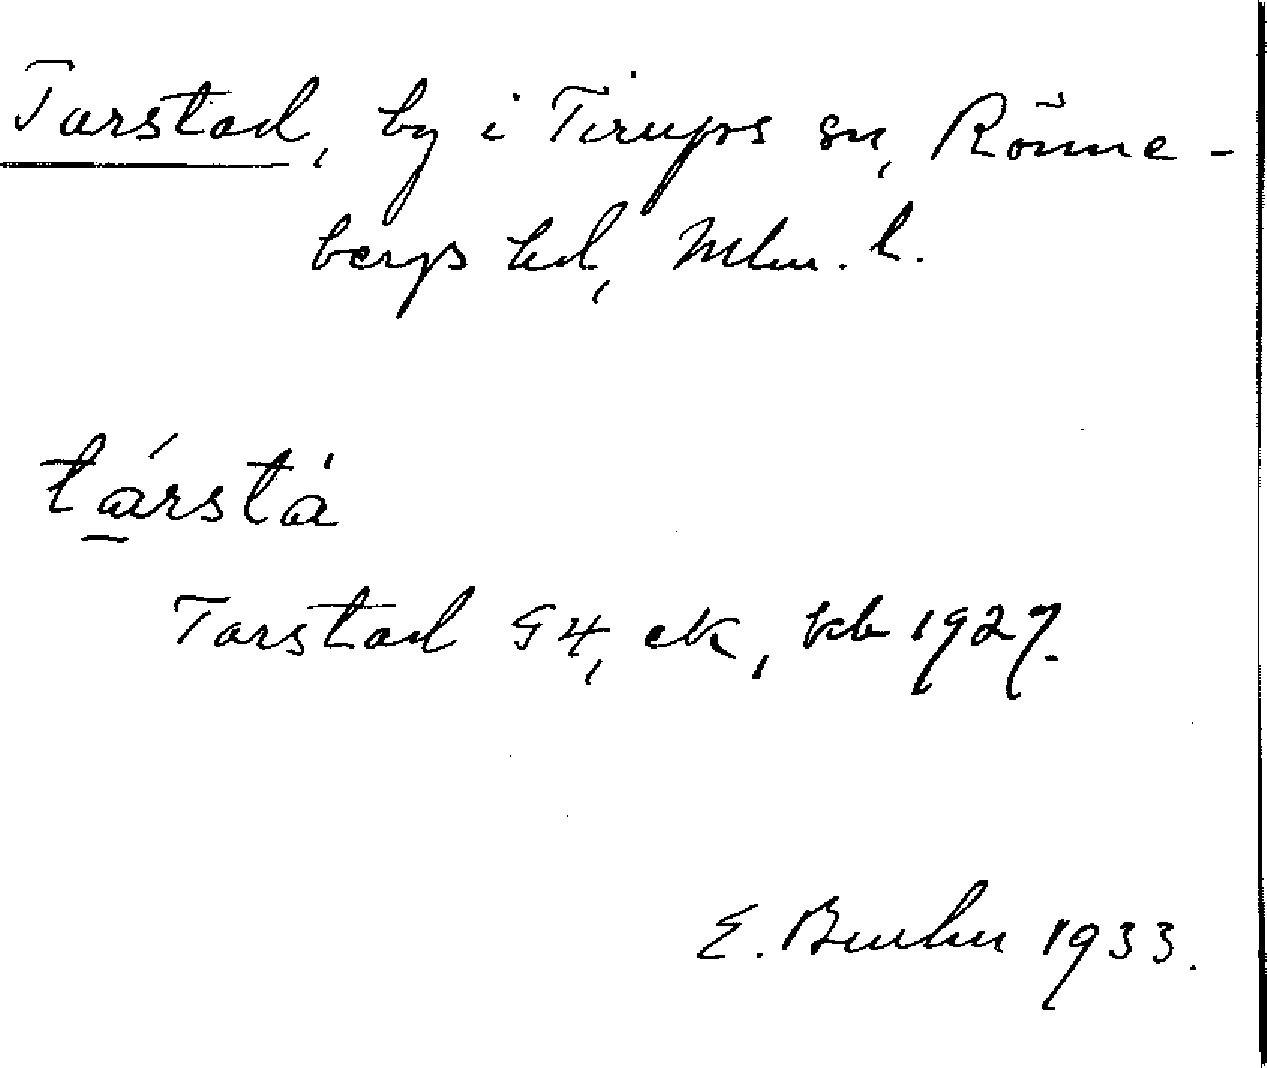 Tarstad, by i Tirups sn, Rönne-
bergs hd, Mlm. l.
társtà
Tarstad G4, ek, kb 1927.
E. 1933.